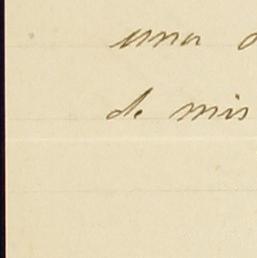 una
de mis